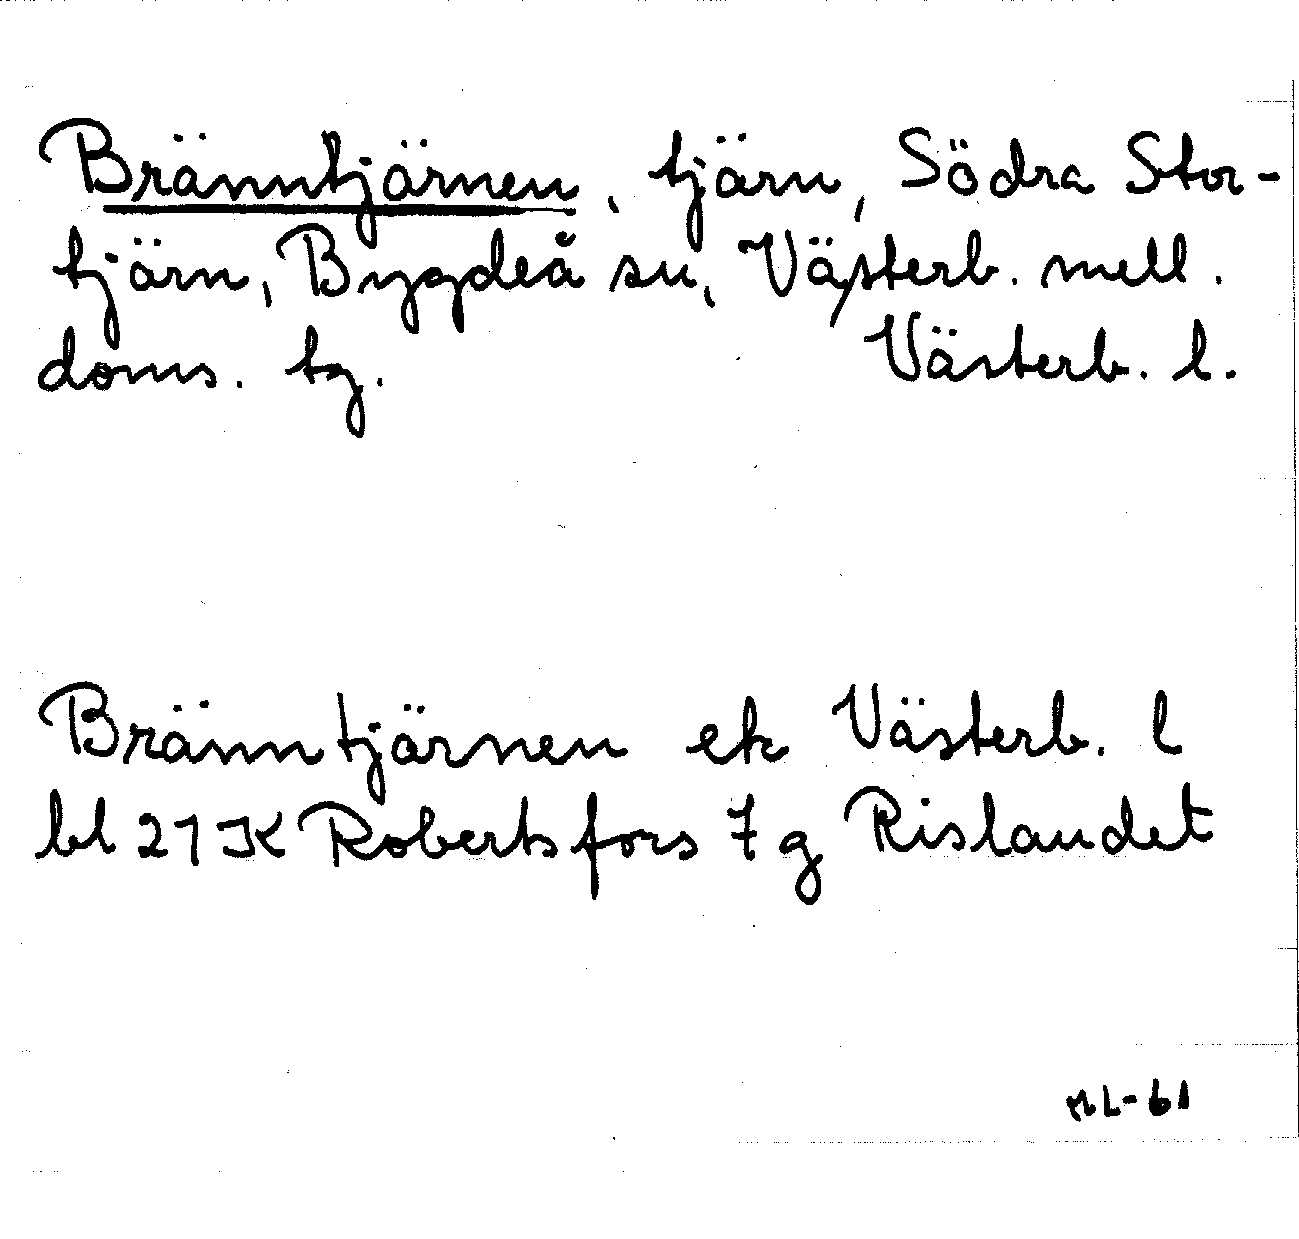 Bränntjärnen, tjärn, Södra Stor-
tjärn, Bygdeå sn, Västerb. mell.
doms. tg. Västerb. l.
Bränntjärnen ek Västerb. l
bl 21K Robertsfors 7g Rislandet
ML-61